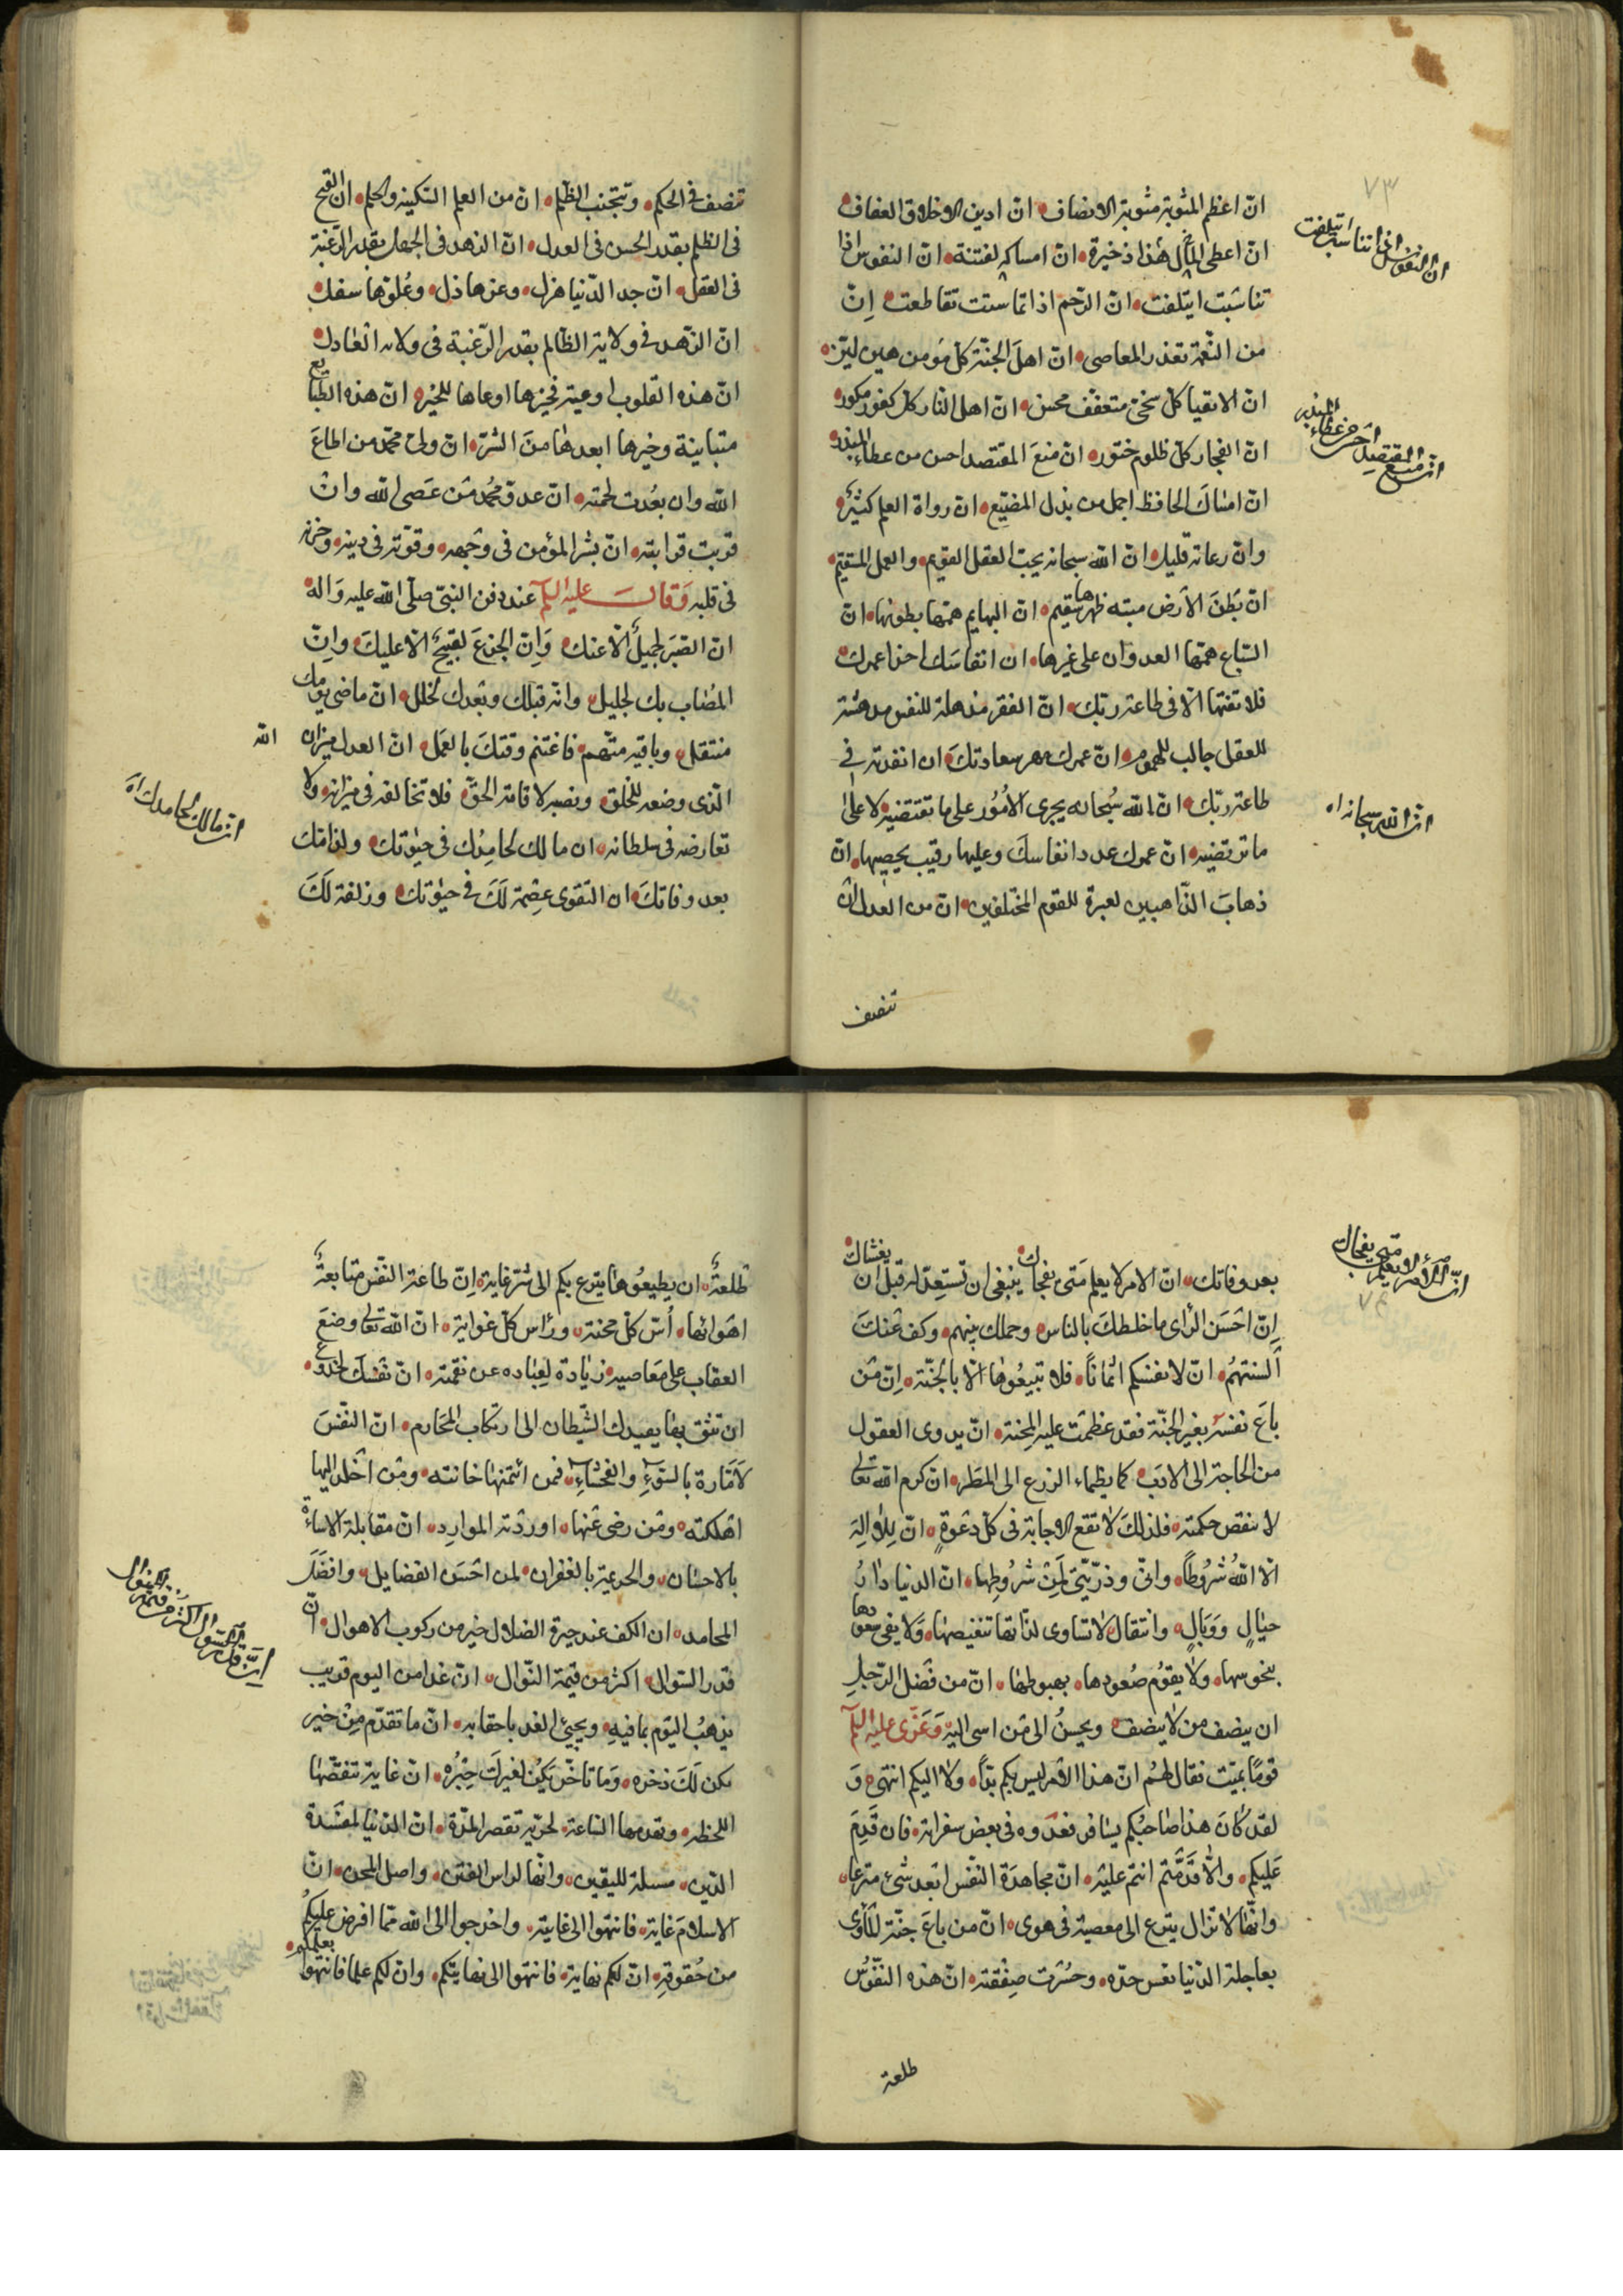 ٧٣
انّ اعظم المثوبة مثوبة الانصاف انّ ازين الاخلاق العفاف
انّ النفوس اذا تناسبت ائتلفت
انّ اعطى المال هذا ذخيرة انّ امساكه لفتنة انّ النفوس اذا
تناسبت ايتلفت انّ الرّحم اذا تماسّت تقاطعت اِنّ
من النّعمة تعذر المعاصى انّ اهلَ الجنّة كل مؤمن هين ليّن
انّ الاتقيا كل سخىّ متعفّف محسن انّ اهل النّار كل كفور مكور
انّ منع المقتصد احسن من عطاء المبذر
انّ الفجار كلّ ظلوم ختور انّ منعَ المقتصد احسن من عطاء المبذر
انّ امساكَ الحافظ اجمل من بذل المضيّع انّ رواة العلم كثيرٌ
وانّ رعاته قليل انّ الله سبحانه يحبّ العقل القويم والعمل المستقيم
انّ بَطنَ الأرض ميته ظهرها سقيم انّ البهايم همّها بطونها انّ
السّباع همّها العدوان على غيرها ان انفاسَك اجزا عمرك
فلا تفنها الّا فى طاعة ربّك انّ الفقر مذهلة للنفس مدهشة
للعقل جالب للهموم انّ عمرك مهر سعادتكَ ان انفدته فى
انّ الله سبحانه اه
طاعة ربّك انّ الله سُبحانه يجرى الأمُور على ما تقتضيه لا على
ما ترتضيه انّ عمرك عدد انفاسكَ وعليها رقيب يحصيها انّ
ذهابَ الذّاهبين لعبرة للقوم المختلفين انّ من العدل ان
تنصف
تنصف فى الحكم وتجتنب الظّلم انّ من العلم السّكينه والحلم انّ القبح
فى الظلم بقدر الحسن فى العدل انّ الزهد فى الجهل بقدر الرّغبة
فى العقل انّ جد الدّنيا هزل وعزها ذل وعُلوّها سفل
انّ الزّهد فى ولاية الظّالم بقدر الرّغبة فى ولاية العَادل
انّ هذه القلوب اوعية فخيرها اوعاها للخير انّ هذه الطبايع
متباينة وخيرها ابعدها منَ الشرّ انّ ولىّ محمّد من اطاعَ
الله وان بعُدت لحمته انّ عدوّ محمّد مَن عَصى الله وانْ
قربت قرابته انّ بشر المؤمن فى وَجهه وقوّته فى دينه وحزنه
فى قلبه وَقالَ عليه السلم عند دفن النبىّ صلّى الله عليه وَاله
انّ الصّبرَ لجميلٌ الّا عنك وَاِنّ الجزعَ لقبيحٌ الّا عليكَ واِنّ
المُصَاب بك لجليل وانّه قبلك وبَعدك لجلل انّ ماضى يومك
منتقل وباقيه متّهم فاغتنم وقتكَ بالعمَل انّ العدل ميزان
الله
الذى وضعه للخلق ونصبه لاقامة الحقّ فلا تخالفه فى ميزانه ولا
انّ مالك لحامدك اه
تعارضه فى سلطانه ان مالك لحامِدك فى حيٰوتك ولذامّك
بعد وفاتكَ ان التقوى عِصْمة لكَ فى حيٰوتك وزلفة لَكَ
انّ الأمر لا يعلم متى يفجاك
٧٤
بعد وفاتك انّ الامر لا يعلم مَتى يفجاك ينبغى ان تستعِدّ له قبل ان يغشاك
اِنّ احْسَنَ الرّاى ما خلطكَ بالناس وجملك بينهم وكف عَنكَ
ألسنتهُم انّ لانفسكم اثمَاناً فلا تبيعُوها الّا بالجَنّة اِنّ مَن
باعَ نفسَه بغير الجنّة فقد عظمَت عليه المِحنة انّ بذوى العقول
من الحاجة الى الادَب كما يظماء الزرع الى المطَر انّ كرم الله تعالى
لا ينقص حكمته فلذلكَ لا تقع الاجابة فى كلّ دعْوةٍ انّ لِلا الٰه
الّا اللهُ شُروطاً وانّى وذرّيّتى لَمِنْ شرُوطِها انّ الدنيا دَارُ
خبَالٍ وَوَبَالٍ وانتقال لا تساوى لذّاتها تنغيصهَا وَلا يفى سعودها
بنحوسها ولا يقوُم صُعودها بهبوطها انّ من فَضل الرّجلِ
ان ينصف من لا ينصف ويحسنُ الى مَن اسى اليه وَعَزّى عليه السلم
قومًا بميّت فقال لهُم انّ هذا الأمر ليس بكم بدَأ ولا اليكم انتهى وَ
لقد كَانَ هذا صَاحبُكم يسَافر فعدّوه فى بعض سفراته فان قَدِمَ
عَليكم والّا قَدَمْتم انتم عليْه انّ مجاهدَة النّفس ابعد شىءٍ منزعًا
وانّها لا تزال ينزع الى معصية فى هوى انّ من باعَ جنّة المأوى
بعاجلة الدّنيا تعس جدّه وخسْرت صفقته انّ هذه النّفُوسُ
طلعة
طلعةٌ ان يطيعُوهَا ينزع بكم الى شرّ غاية اِنّ طاعة النّفس متابعةُ
اهَوائها اُسّ كلّ محنة ورَاس كلّ غواية انّ الله تعالى وضعَ
العقاب على مَعاصيه زيَادة لِعبَاده عن نقمته انّ نَفسَكَ لخدوع
ان تثق بهَا يقيدك الشّيطان الى ارتكاب المحَارم انّ النّفسَ
لأمَّارة بالسّوءِ والفحْشاءِ فمن ائتمنهَا خانته ومَن اخْلد اليها
اهْلكته ومَن رضى عَنها اوردَته الموارِد انّ مقابلة الاساءَة
بالاحسَان والجريمة بالغفران لمن احْسَن الفضايل وافضَل
المحامد ان الكف عند حيرة الضلال خير من ركوب الاهوال انّ
انّ قدر السّوال اكثر من قيمة النوال
قدر السّوال اكثر من قيمة النّوال انّ غدا من اليوم قريب
يذهبُ اليَوم بما فيهِ ويجيئ الغد باحقابه انّ ما تقدّم مِنْ خير
يكن لَكَ ذخره ومَا تاخّر يَكُن لغيركَ خيْرُه انّ غاية تنقصّها
اللحظه وتهدمها السّاعة لحريّة بقصر المدّة انّ الدّنيا لمفسَدة
الدّين مسلبة لليقين وانّها لراس الفتن واصل المحن انّ
الاسلامَ غاية فانتهوا الى غايته واخرجوا الى الله ممّا افرض عليكُم
من حُقوقه انّ لكم نهاية فانتهوا الى نهايتكم وانّ لكم علما فانتهوا بعلمكم